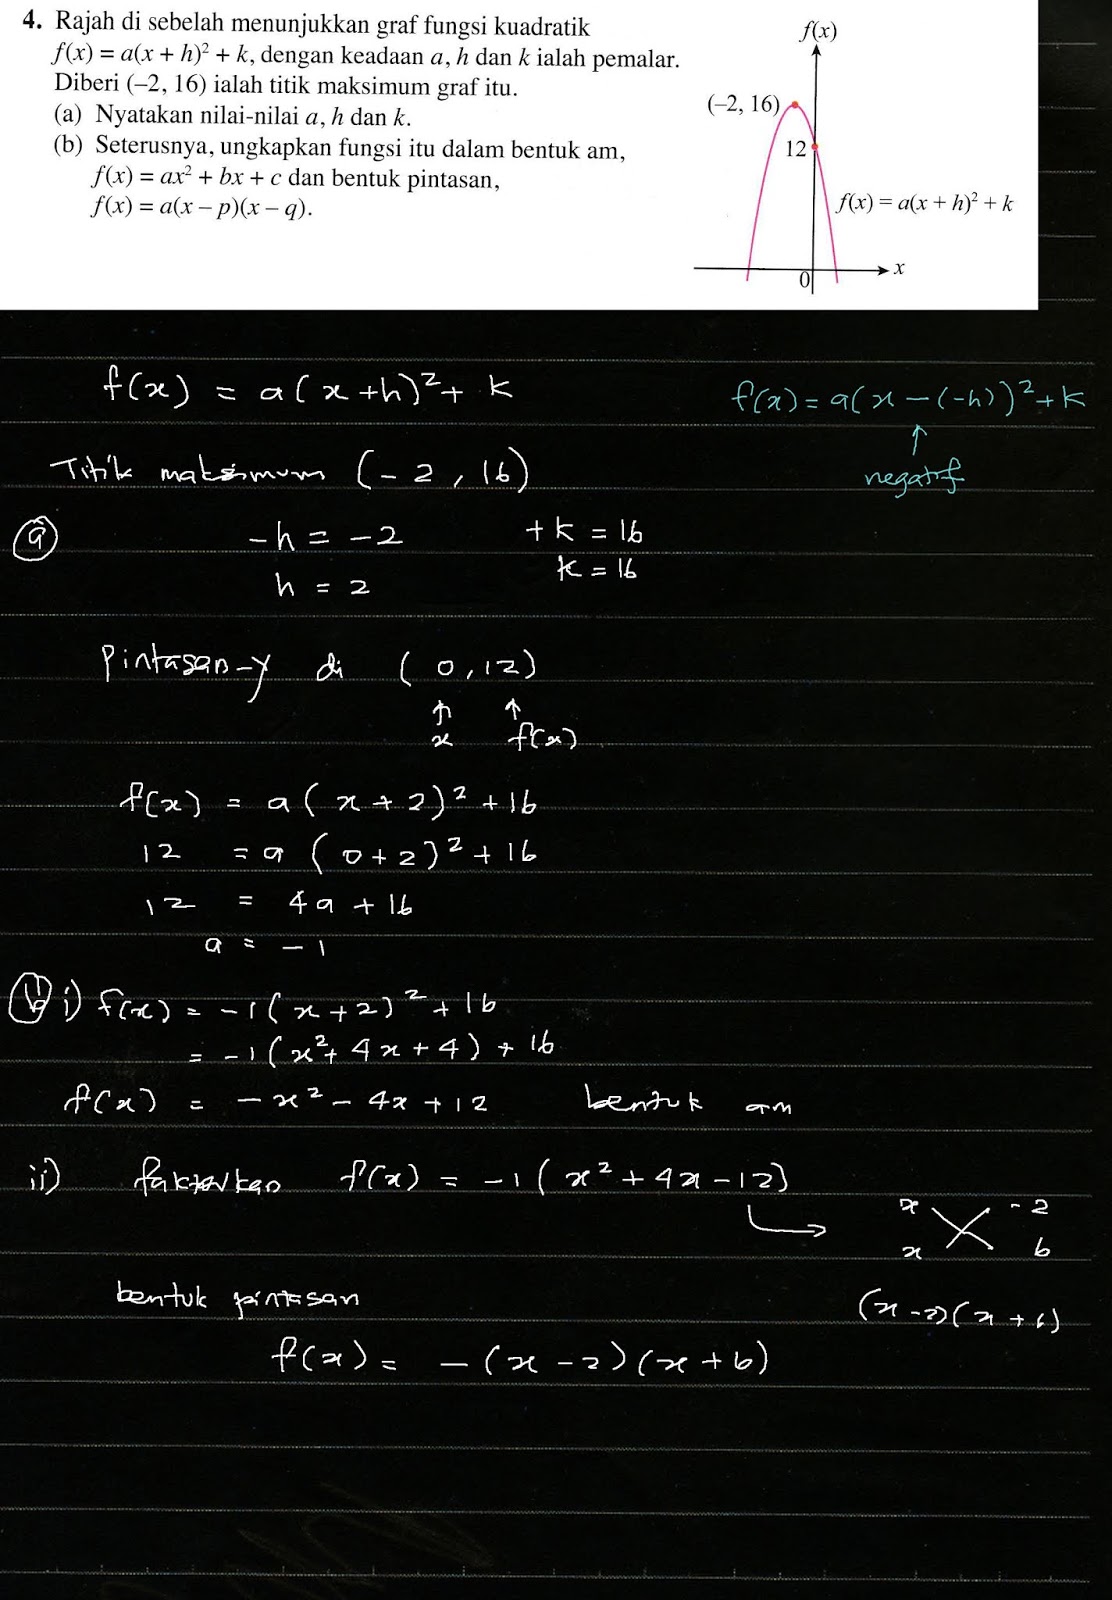 4. Rajah di sebelah menunjukkan graf fungsi kuadratik
f(x) = a(x + h)² + k, dengan keadaan a, h dan k ialah pemalar.
Diberi (–2, 16) ialah titik maksimum graf itu.
(a) Nyatakan nilai-nilai a, h dan k.
(b) Seterusnya, ungkapkan fungsi itu dalam bentuk am,
f(x) = ax² + bx + c dan bentuk pintasan,
f(x) = a(x – p)(x – q).
f(x)
(–2, 16)
12
f(x) = a(x + h)² + k
x
0
f(x) = a(x+h)² + k
f(x) = a(x – (-h))² + k
↑
negatif
Titik maksimum (-2, 16)
(a)
-h = -2
+k = 16
h = 2
k = 16
Pintasan-y di (0, 12)
↑ ↑
x f(x)
f(x) = a(x + 2)² + 16
12 = a(0+2)² + 16
12 = 4a + 16
a = -1
(b) i) f(x) = -1(x+2)² + 16
= -1(x² + 4x + 4) + 16
f(x) = -x² - 4x + 12 bentuk am
ii) faktorkan f(x) = -1(x² + 4x - 12)
x -2
x 6
bentuk pintasan
(x -2)(x + 6)
f(x) = -(x - 2)(x + 6)